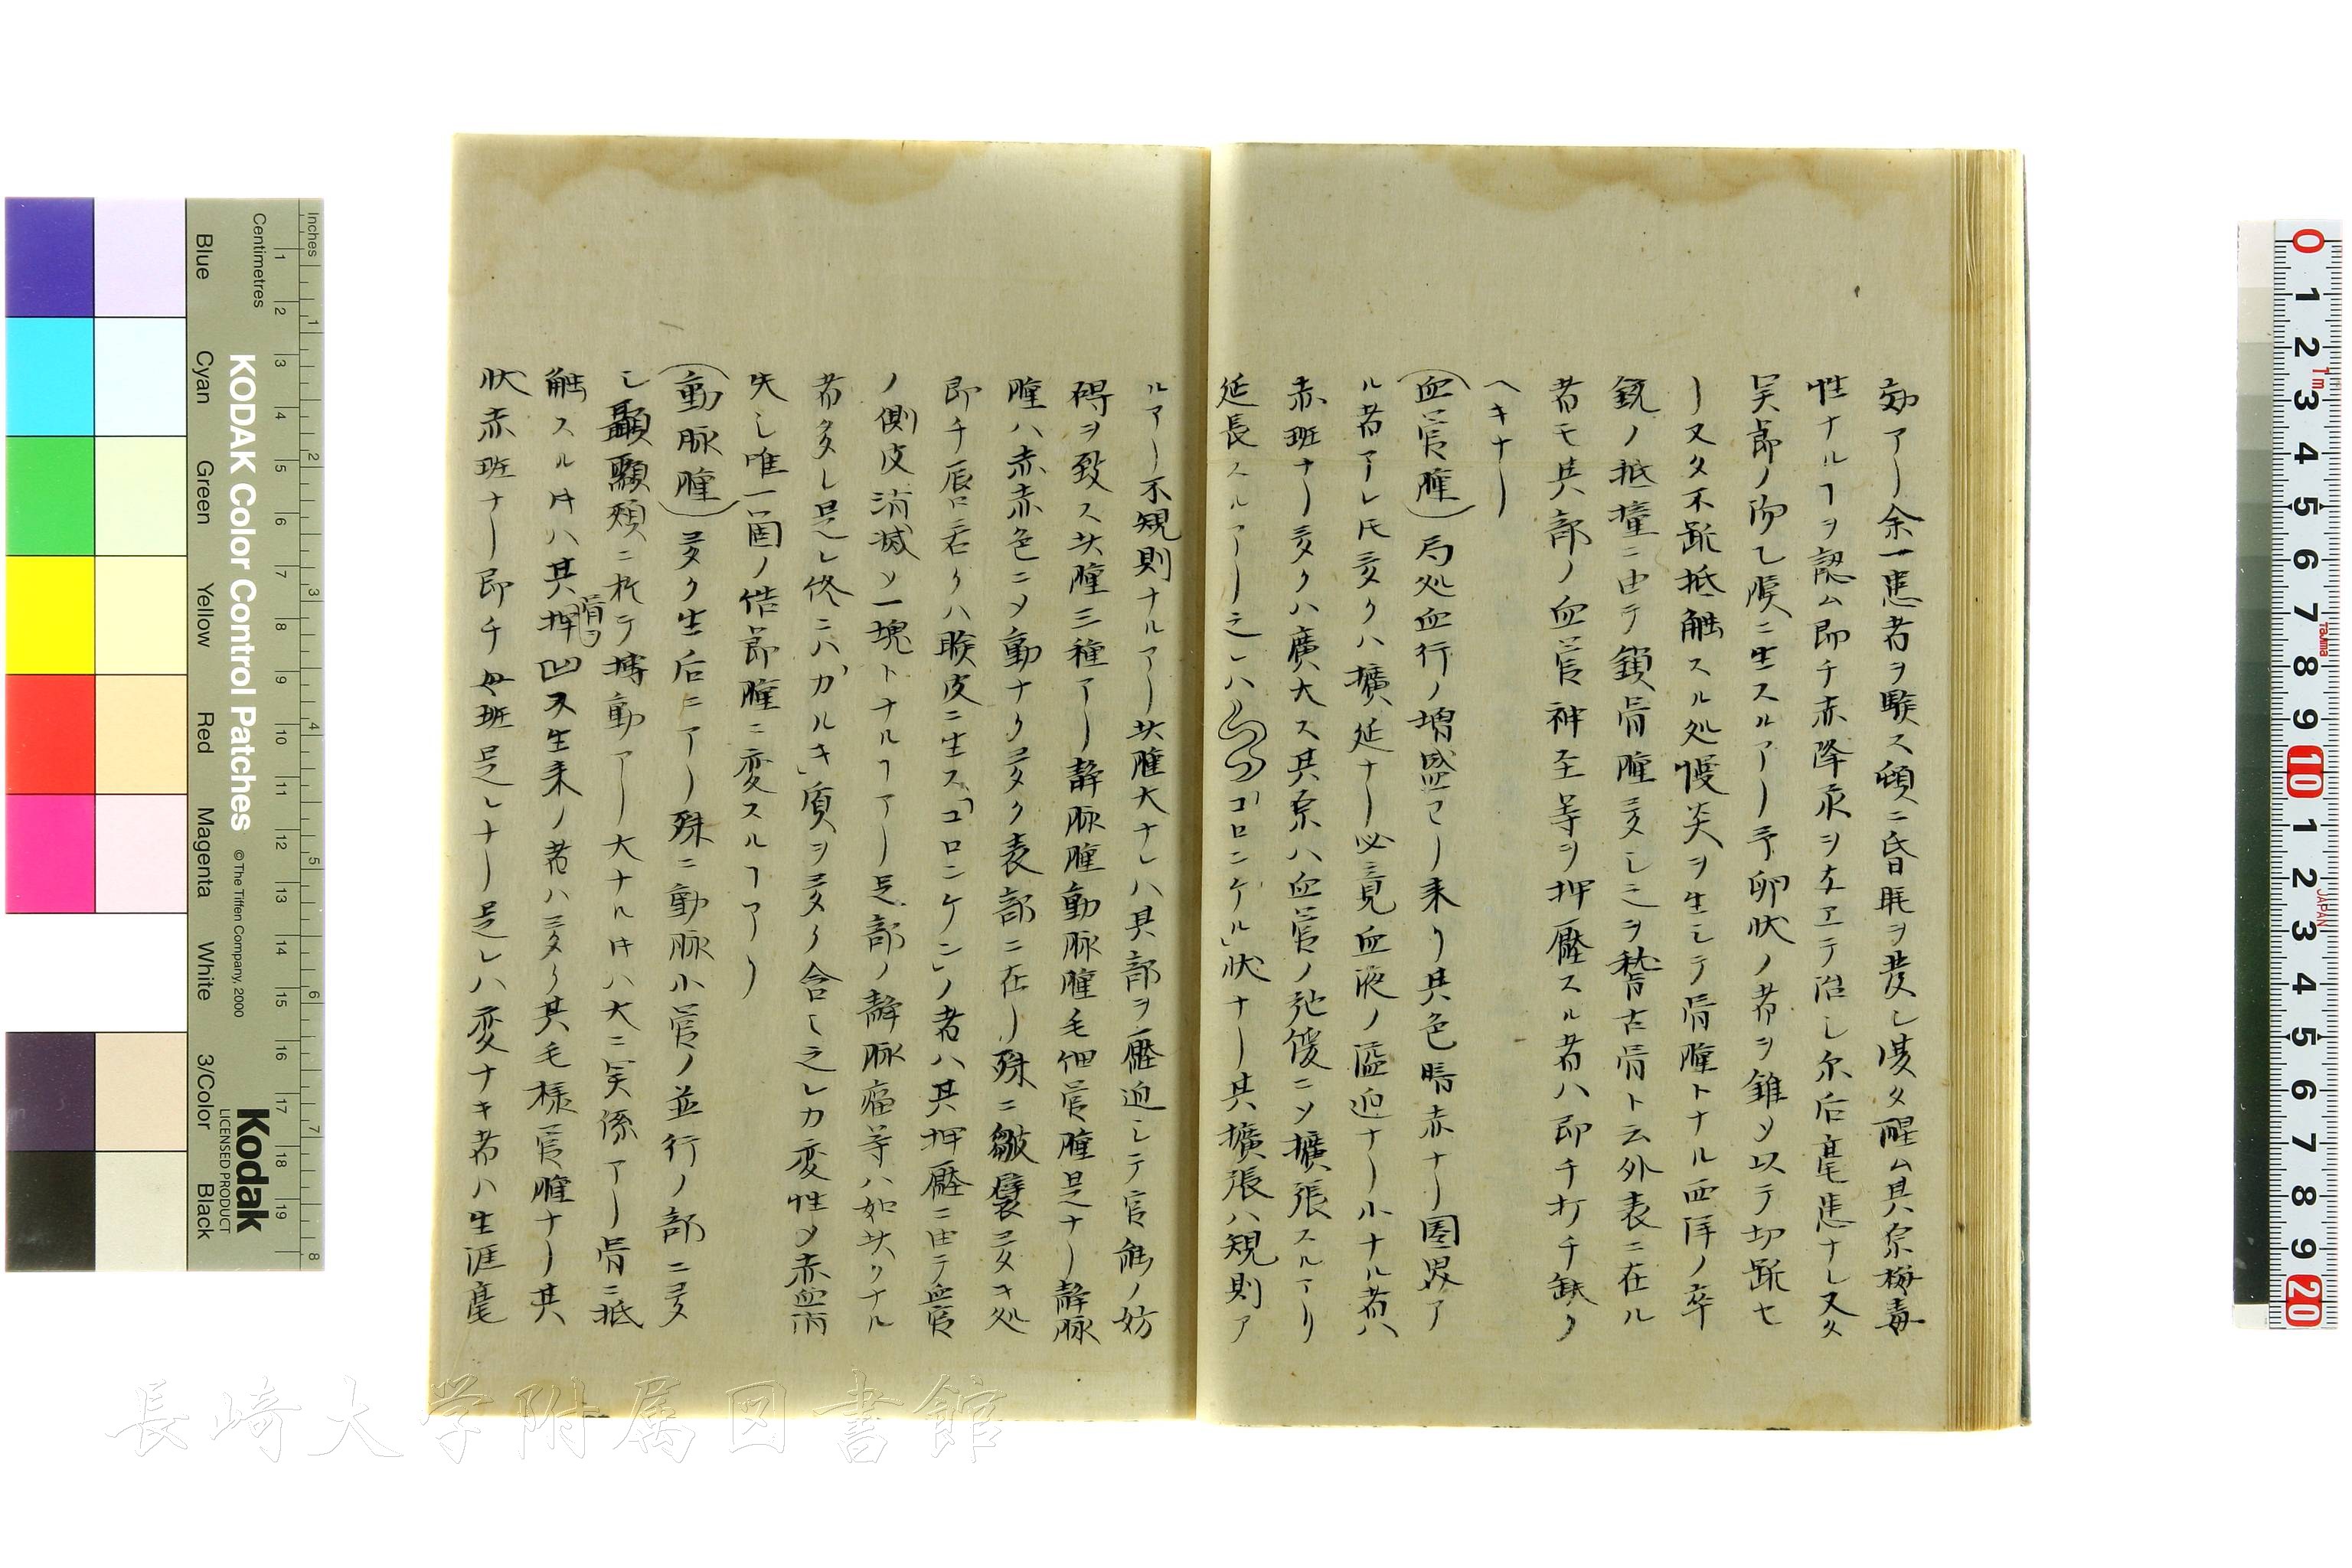 効アリ余一患者ヲ験ス頓ニ昏眊ヲ発シ復タ醒ム其原梅毒
性ナルヿヲ認ム即チ赤降汞ヲ与エテ治シ尓后毫患ナシ又タ
ノ陥凹シ腠ニ生スルアリ予卵状ノ者ヲ錐ヲ以テ切跡セ
リ又タ不跡抵触スル処慢炎ヲ生シテ骨腫トナル西洋ノ卒
銃ノ抵撞ニ由テ鎖骨腫多シ之ヲ古骨ト云外表ニ在ル
者モ其部ノ血管神圣等ヲ押壓スル者ハ即チ打チ鈌ク
ヘキナリ
(血管腫)局処血行ノ増盛ヨリ来リ其色暗赤ナリ圏界ア
ル者アレ𪜈多クハ擴延ナリ必竟血液ノ溢迫ナリ小ナル者ハ
赤班ナリ多クハ廣大ス其原ハ血管ノ弛緩ニ〆擴張スルアリ
延長スルアリ之レハ「コロンケル」状ナリ其擴張ハ規則ア
ルアリ不規則ナルアリ此腫大ナレハ其部ヲ壓迫シテ官能ノ妨
碍ヲ致ス此腫三種アリ静脉腫動脉腫毛細管腫是ナリ静脉
腫ハ赤赤色ニ〆動ナク多ク表部ニ在リ殊ニ皺襞多キ処
即チ唇舌若クハ睺皮ニ生ス「コロンケン」ノ者ハ其押壓ニ由テ血管
ノ側皮消滅ソ一塊トナルヿアリ是部ノ静脉瘤等ハ如此クナル
者多シ是レ終ニハ「カルキ」質ヲ多ク含ミ之レカ変性〆赤血
失シ唯一箇ノ結節腫ニ変スルヿアリ
(動脉腫)多ク生后ニアリ殊ニ動脉小管ノ並行ノ部ニ多
シ顳顬頬ニ於テ搏動アリ大ナル𪜈ハ大ニ関係アリ骨ニ抵
触スル𪜈ハ其骨ヲ押凹ス生来ノ者ハ多ク其毛様管腫ナリ其
状赤班ナリ即チ母班是レナリ是レハ変ナキ者ハ生涯毫
KODAK Color Control Patches
© The Tiffen Company, 2000
Kodak
LICENSED PRODUCT
Inches
Centimetres
Blue
Cyan
Green
Yellow
Red
Magenta
White
3/Color
Black
長崎大学附属図書館